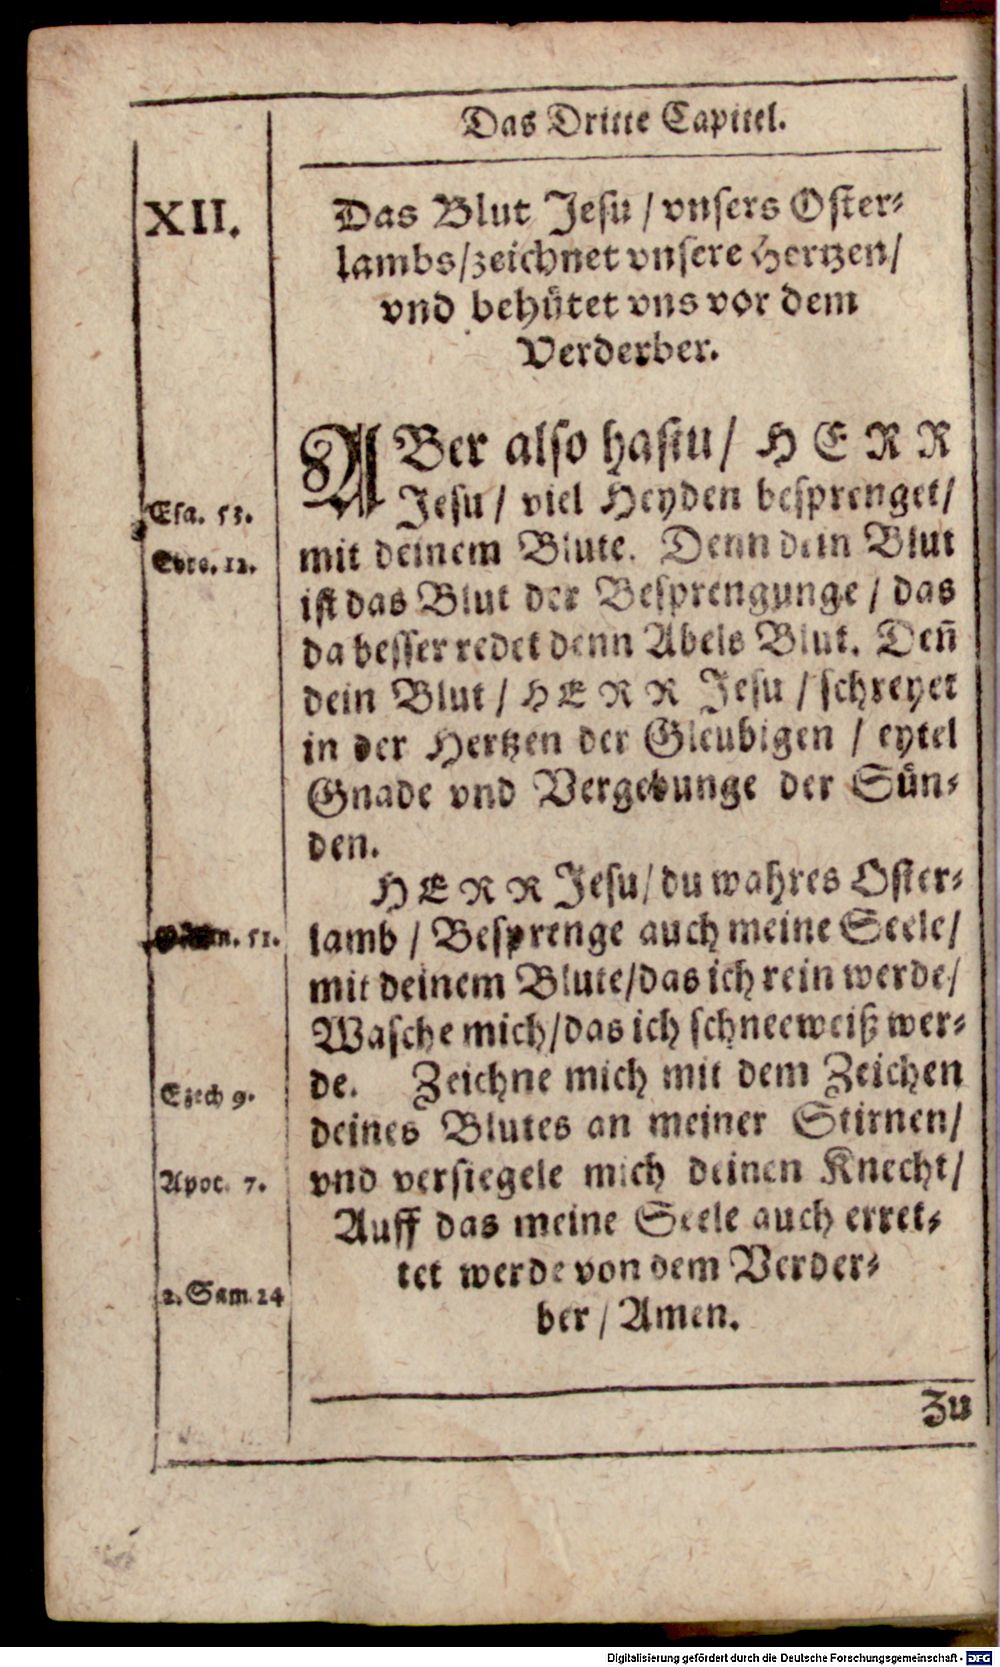 Das Dritte Capittel.
XII.
Das Blut Jesu / vnsers Oster-
lambs/zeichnet vnsere Hertzen/
vnd behütet vns vor dem
Verderber.
ABer also hastu/ HERR
Jesu / viel Heyden besprenget/
Esa. 53.
mit deinem Blute. Denn dein Blut
Ebre. 12.
ist das Blut der Besprengunge / das
da besser redet denn Abels Blut. Deñ
dein Blut / HERR Jesu / schreyet
in der Hertzen der Gleubigen / eytel
Gnade vnd Vergebunge der Sün-
den.
HERR Jesu/ du wahres Oster-
lamb / Besprenge auch meine Seele/
51.
mit deinem Blute/das ich rein werde/
Wasche mich/das ich schneeweiß wer-
de. Zeichne mich mit dem Zeichen
Ezech 9.
deines Blutes an meiner Stirnen/
vnd versiegele mich deinen Knecht/
Apoc. 7.
Auff das meine Seele auch erret-
tet werde von dem Verder-
2. Sam 24
ber / Amen.
Zu
Digitalisierung gefördert durch die Deutsche Forschungsgemeinschaft - DFG